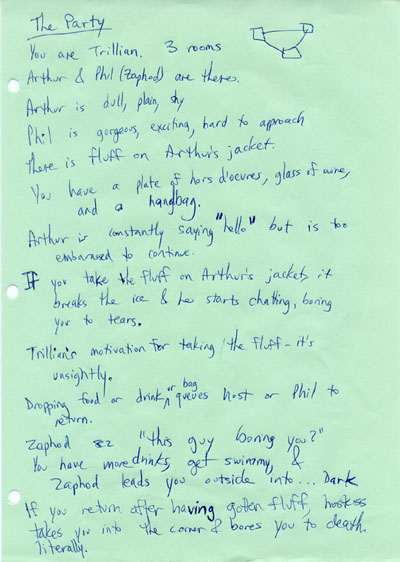 The Party
You are Trillian. 3 rooms
Arthur & Phil (Zaphod) are there.
Arthur is dull, plain, shy
Phil is gorgeous, exciting, hard to approach
There is fluff on Arthur's jacket.
You have a plate of hors d'oevres, glass of wine,
and a handbag.
Arthur is constantly saying "hello" but is too
embarassed to continue.
If you take the fluff on Arthur's jacket, it
breaks the ice & he starts chatting, boring
you to tears.
Trillian's motivation for taking the fluff - it's
unsightly.
Dropping food or drink or bag queues host or Phil to
return.
Zaphod "this guy boring you?"
You have more drinks, get swimmy, &
Zaphod leads you outside into... Dark
If you return after having gotten fluff, hostess
takes you into the corner & bores you to death.
literally.